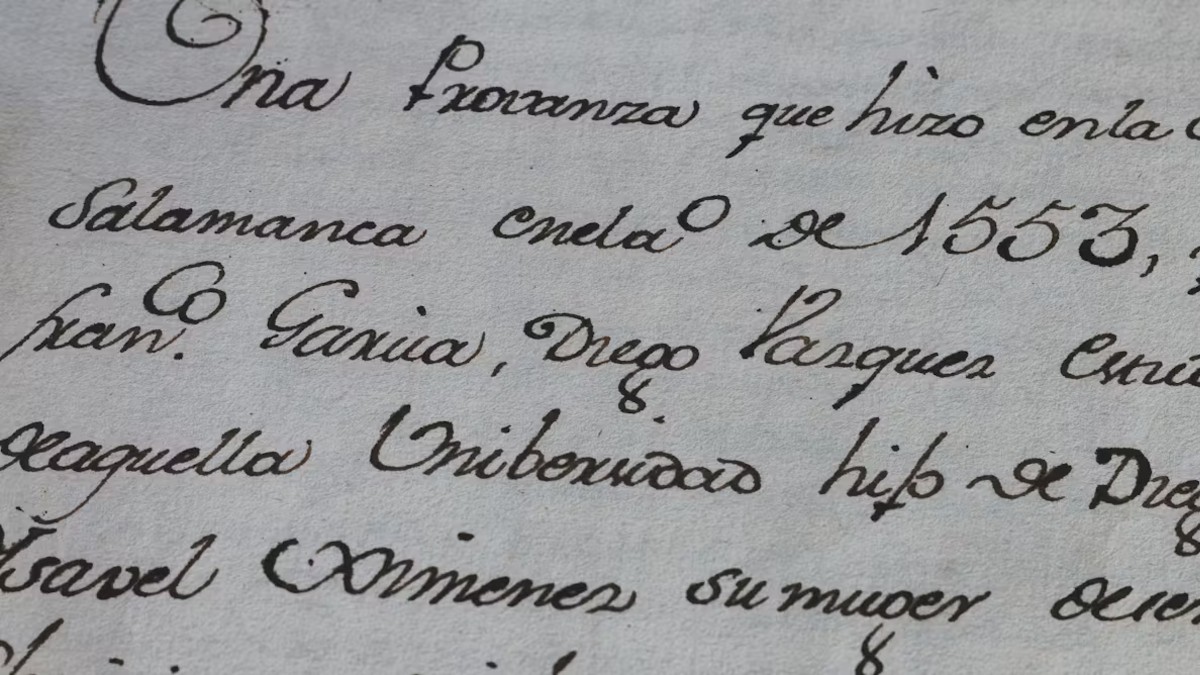 Una Provanza que hizo enla
Salamanca enel aº de 1553,
Franco. Garcia, Diego Vazquez
deaquella Unibersidad hijo de Dieg
Ysavel Ximenez su muger